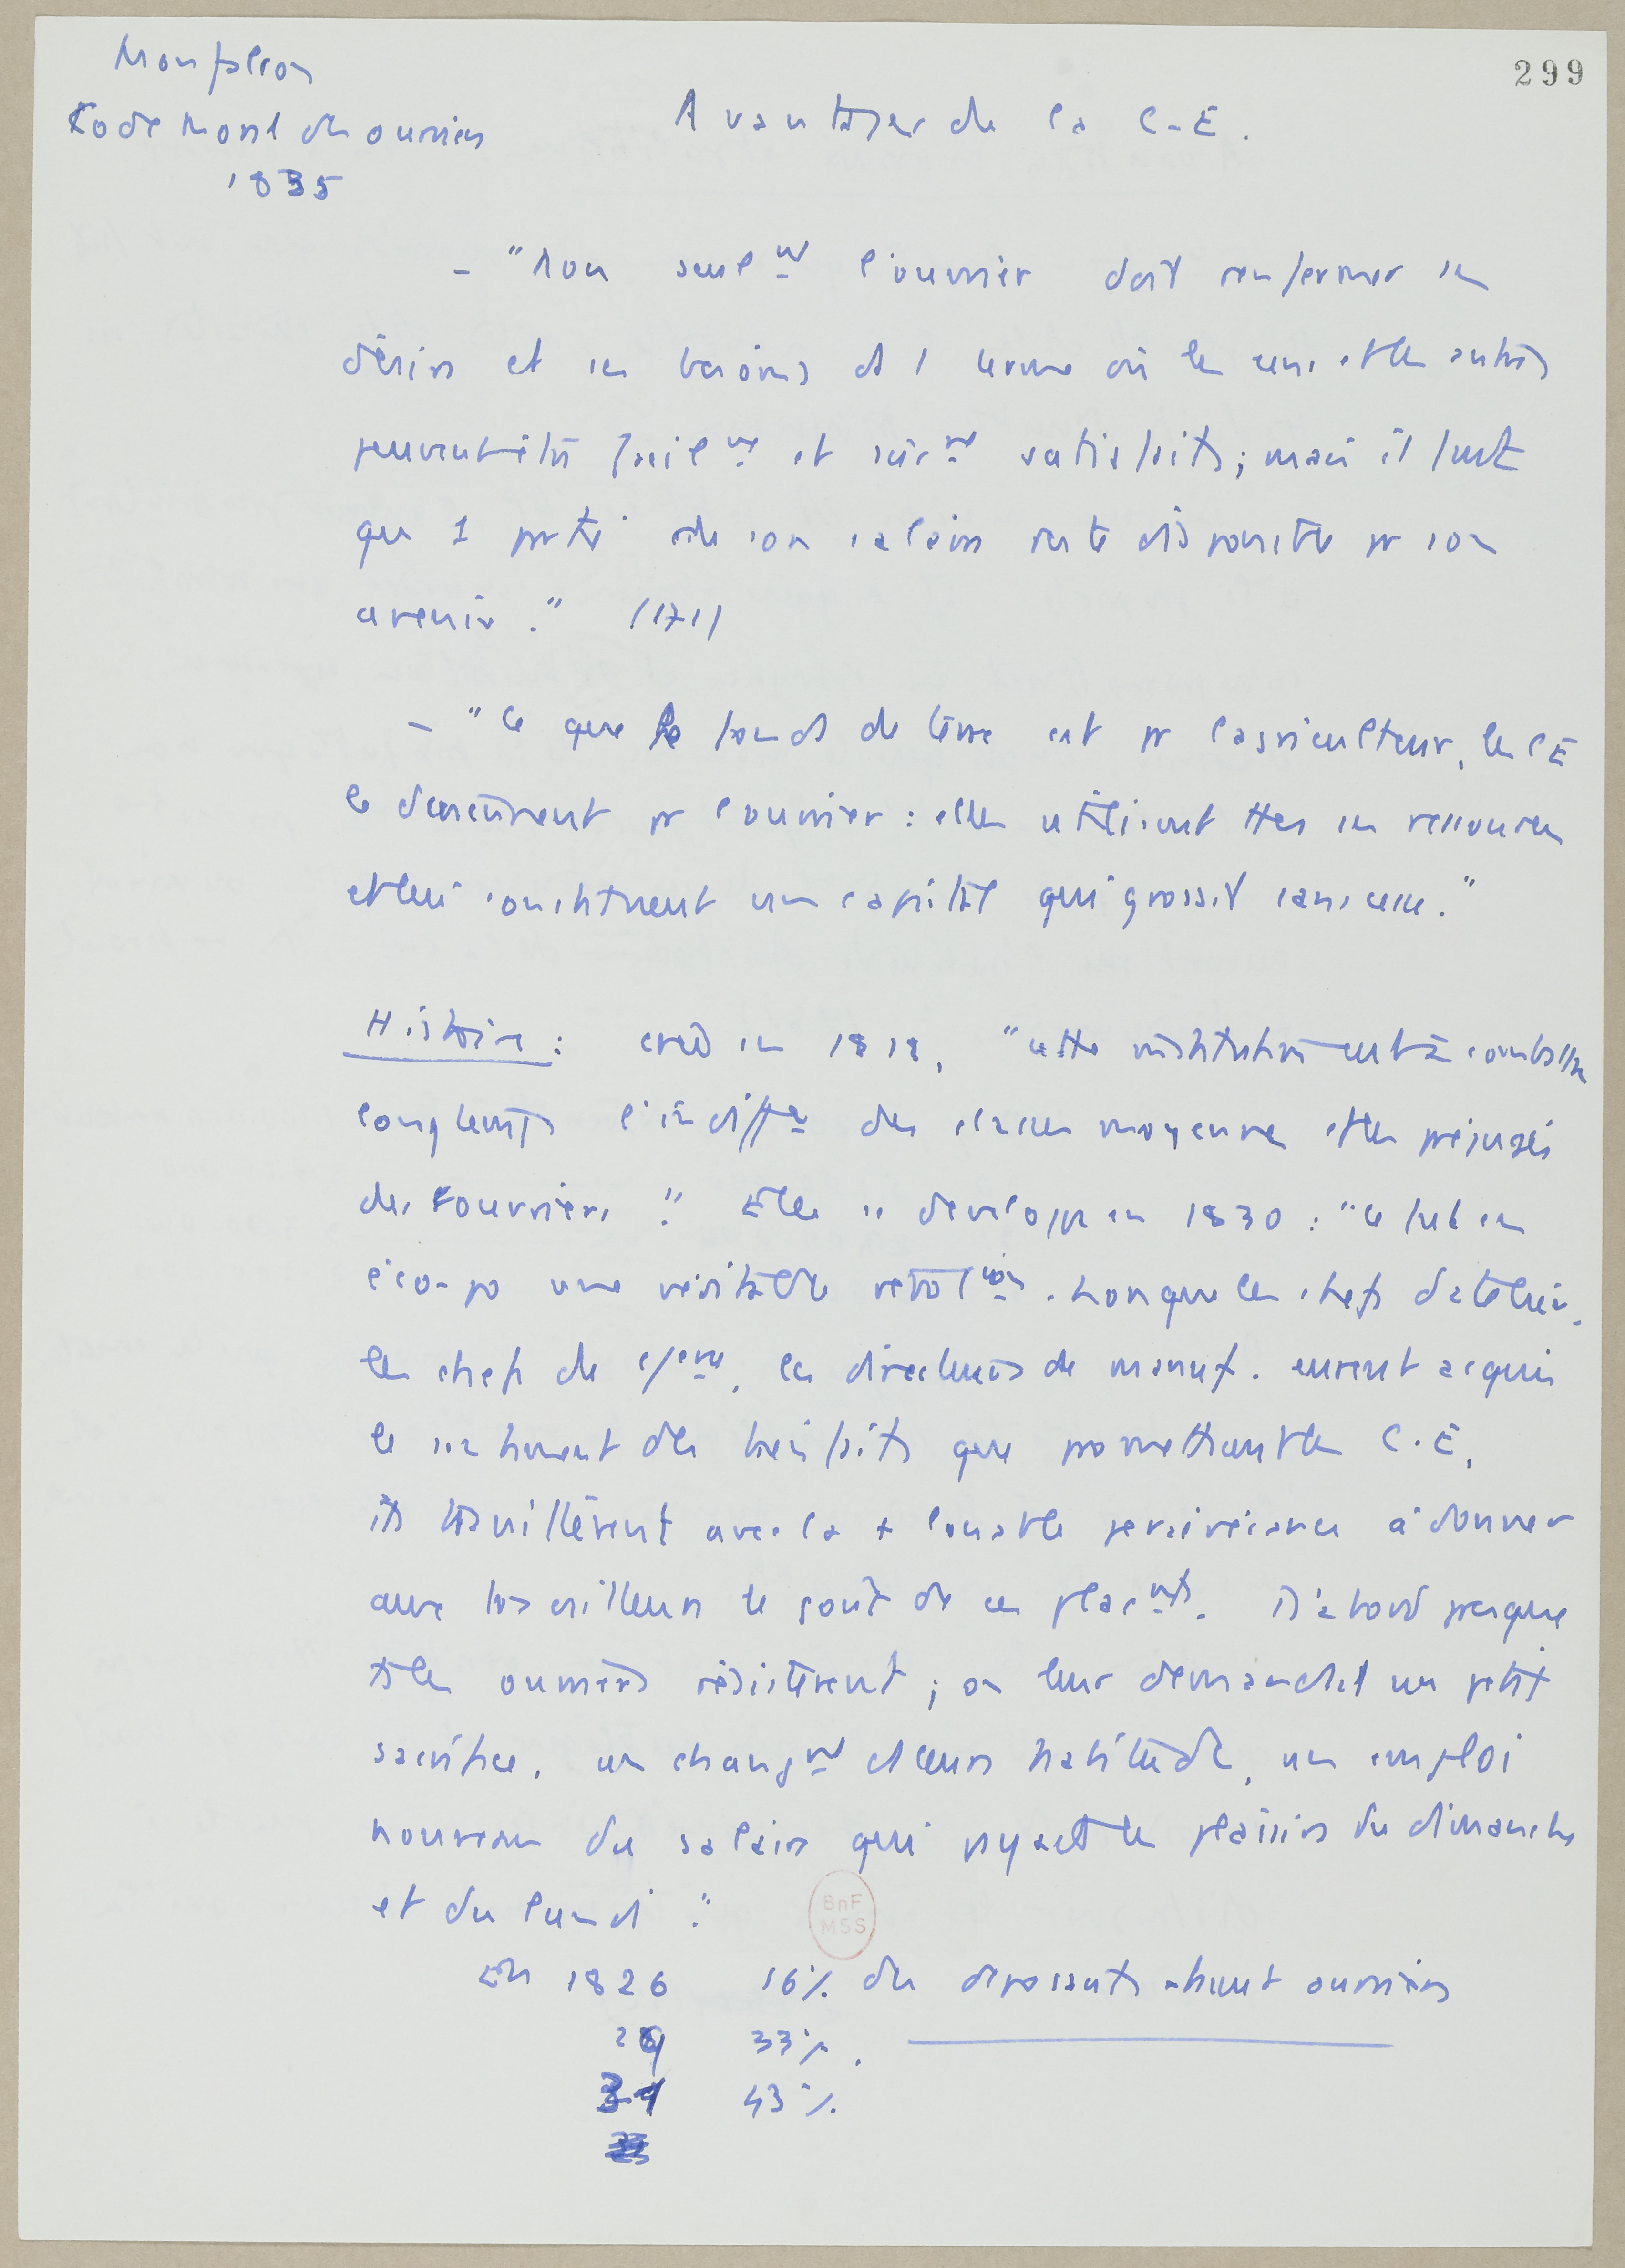 299
Monfalcon
Code moral des ouvriers
1835
Avantages de la C-E.
- "Non seulnt l'ouvrier doit renfermer ses
désirs et ses besoins ds 1 cercle où les uns et les autres
peuvent être facilnt et sûrnt satisfaits ; mais il faut
que 1 partie de son salaire reste disponible pr son
avenir." (171)
- "Ce que le fonds de terre est pr l'agriculteur, les CE
le deviennent pr l'ouvrier : elles utilisent ttes ses ressources
et lui constituent un capital qui grossit sans cesse."
Histoire : créée en 1818, "cette institution eut à combattre
longtemps l'indiffce des classes moyennes et les préjugés
des ouvriers." Elle se développe en 1830 : "ce fut en
éco-po une véritable révolion. Lorsque les chefs d'atelier,
les chefs de commerce, les directeurs de manuf. eurent acquis
le sentiment des bienfaits que promettaient les C.E,
ils travaillèrent avec la + louable persévérance à donner
aux travailleurs le goût de ces placnts. D'abord presque
ts les ouvriers résistèrent ; on leur demandait un petit
sacrifice, un changnt ds leurs habitudes, un emploi
nouveau du salaire qui payait les plaisirs du dimanche
et du lundi."
En 1826 16% des déposants étaient ouvriers
29 33%.
34 43%.
BnF
MSS